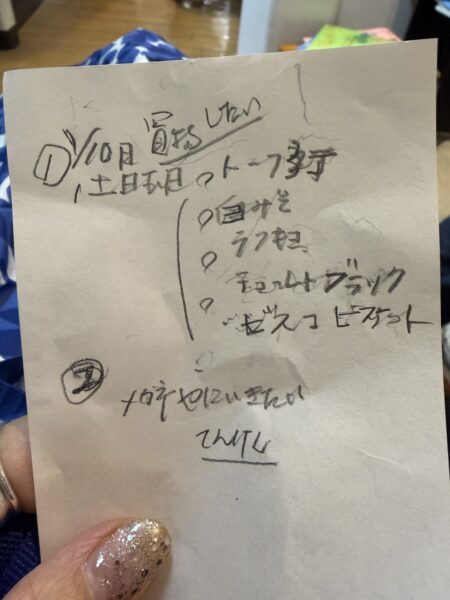 ① 1/10月 買物したい
土日
トーフ
白みそ
ラフキヨ
チョコレートブラック
ビスコ ビスケット
②
メガネやにいきたい
てんけん